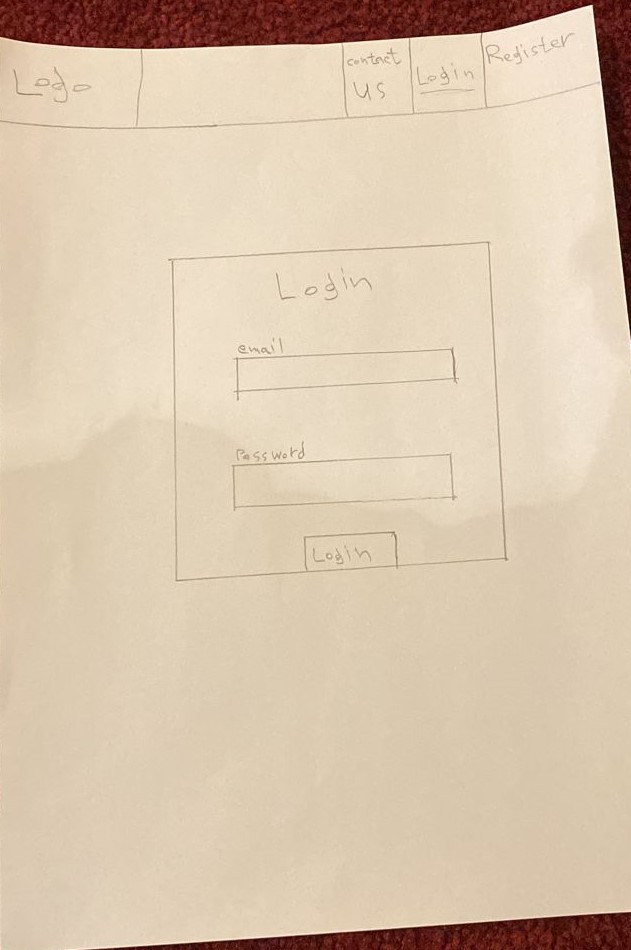 Logo
contact
us
Login
Register
Login
email
Password
Login